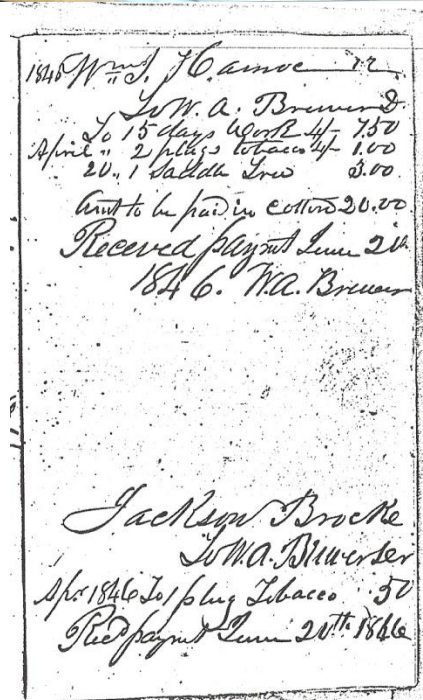 1846 Wm J. Hamoc Dr.
To W. A. Brewer D
To 15 days Work 4/- 7.50
April " 2 plugs tobacco 4/- 1.00
20 " 1 Saddle Tree 3.00
Amt to be paid in cotton 20.00
Receved paymt June 20th
1846. W. A. Brewer
Jackson Brocke
To W. A. Brewer
Apr. 1846 To 1 plug Tobacco 50
Recd paymt June 20th 1846